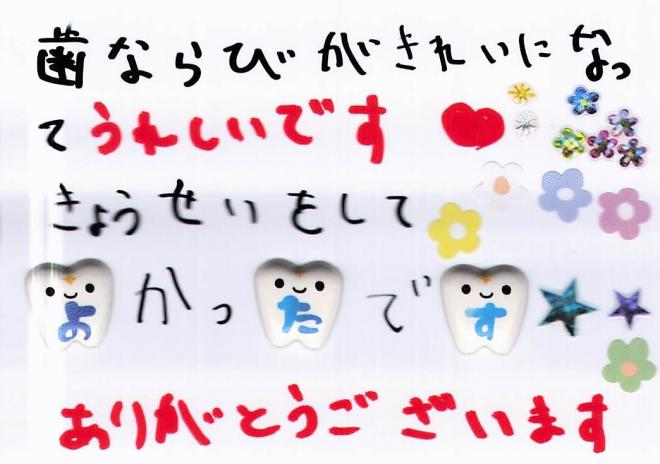 歯ならびがきれいになっ
てうれしいです
きょうせいをして
よかったです
ありがとうございます